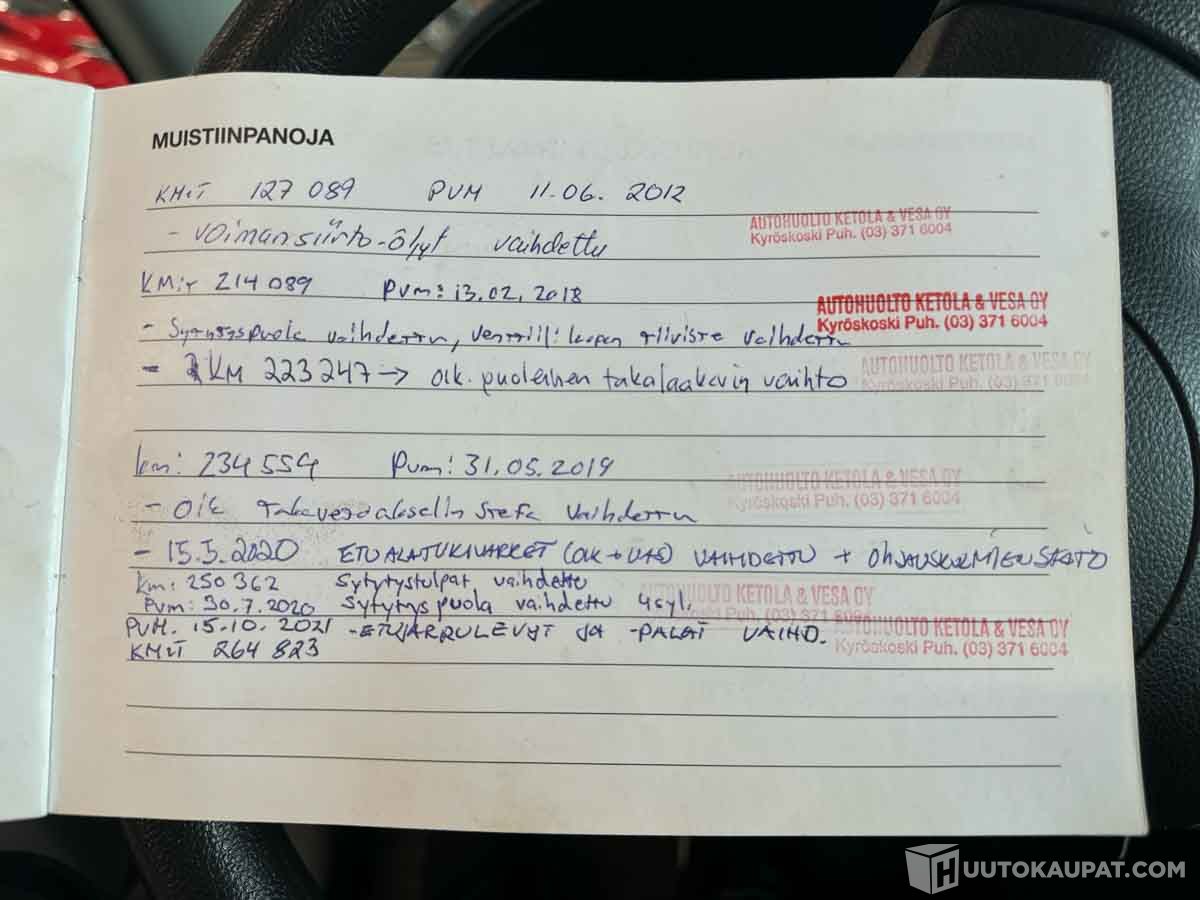 MUISTIINPANOJA
KMIT 127 089 PVM 11.06. 2012
AUTOHUOLTO KETOLA & VESA OY
Kyröskoski Puh. (03) 371 6004
- Voimansiirto-öljyt vaihdettu
KMIT 214 089 PVM: 13.02.2018
AUTOHUOLTO KETOLA & VESA OY
Kyröskoski Puh. (03) 371 6004
- Sytytyspuola vaihdettu, venttiilikopan tiiviste vaihdettu
- KM 223 247 → oik. puoleinen takalaakerin vaihto
AUTOHUOLTO KETOLA & VESA OY
Kyröskoski Puh. (03) 371 6004
km: 234 554 Pvm: 31.05.2019
AUTOHUOLTO KETOLA & VESA OY
Kyröskoski Puh. (03) 371 6004
- Oik takavetoakselin Stefa vaihdettu
- 15.5.2020 ETUALATUKIVARRET (OIK + VAS) VAIHDETTU + OHJAUSKULMIEN SÄÄTÖ
km: 250 362 Sytytystulpat vaihdettu
AUTOHUOLTO KETOLA & VESA OY
Puh. (03) 371 6004
Pvm: 30.7.2020 Sytytyspuola vaihdettu 4syl.
PVM. 15.10.2021 -ETUJARRULEVYT JA -PALAT VAIHD.
AUTOHUOLTO KETOLA & VESA OY
Kyröskoski Puh. (03) 371 6004
KMIT 264 823
HUUTOKAUPAT.COM